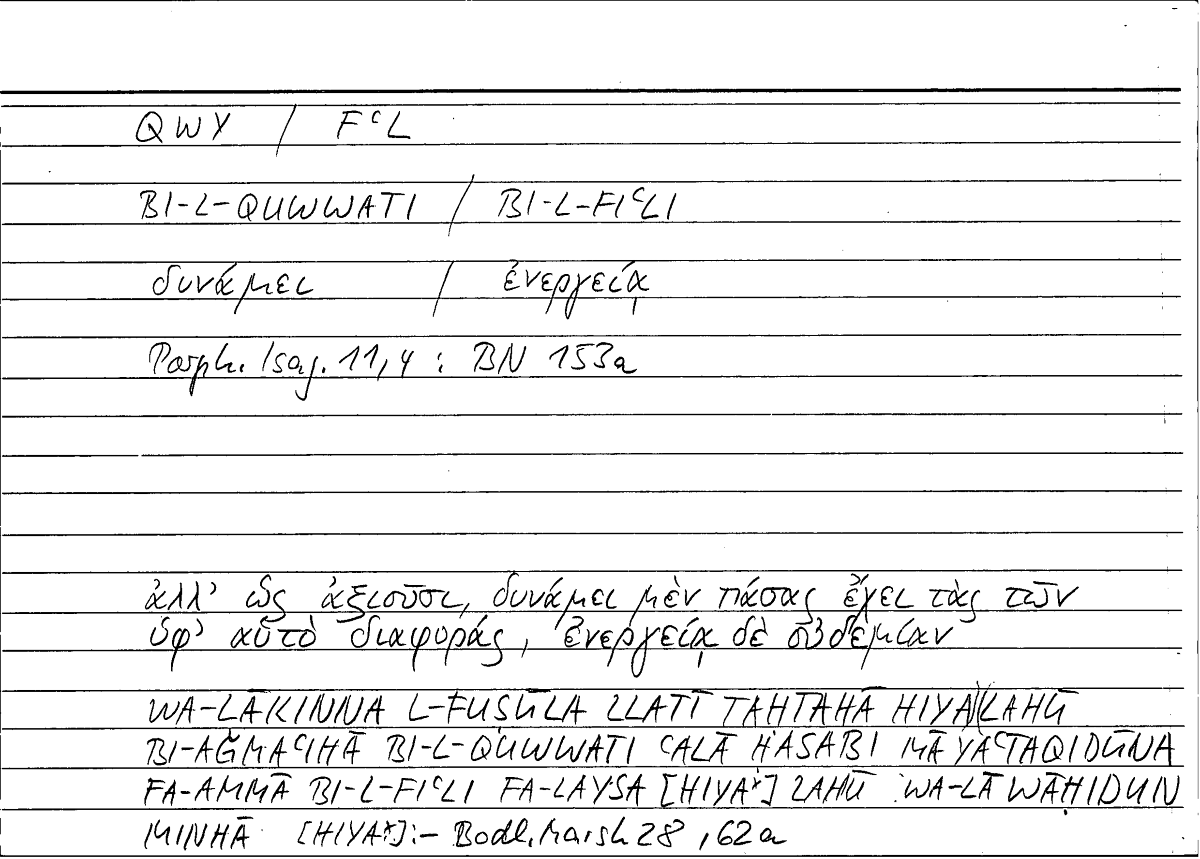 QWY / FᶜL
BI-L-QUWWATI / BI-L-FIᶜLI
δυνάμει / ἐνεργείᾳ
Porph. Isag. 11,4 : BN 153a
ἀλλ’ ὡς ἀξιοῦσι, δυνάμει μὲν πάσας ἔχει τὰς τῶν
ὑφ’ αὑτὸ διαφοράς, ἐνεργείᾳ δὲ οὐδεμίαν
WA-LĀKINNA L-FUṢŪLA LLATĪ TAḤTAHĀ HIYA LAHŪ
BI-AǦMAᶜIHĀ BI-L-QUWWATI ᶜALĀ ḤASABI MĀ YAᶜTAQIDŪNA
FA-AMMĀ BI-L-FIᶜLI FA-LAYSA [HIYA*] LAHŪ WA-LĀ WĀḤIDUN
MINHĀ [HIYA*]:– Bodl. Marsh 28, 62a